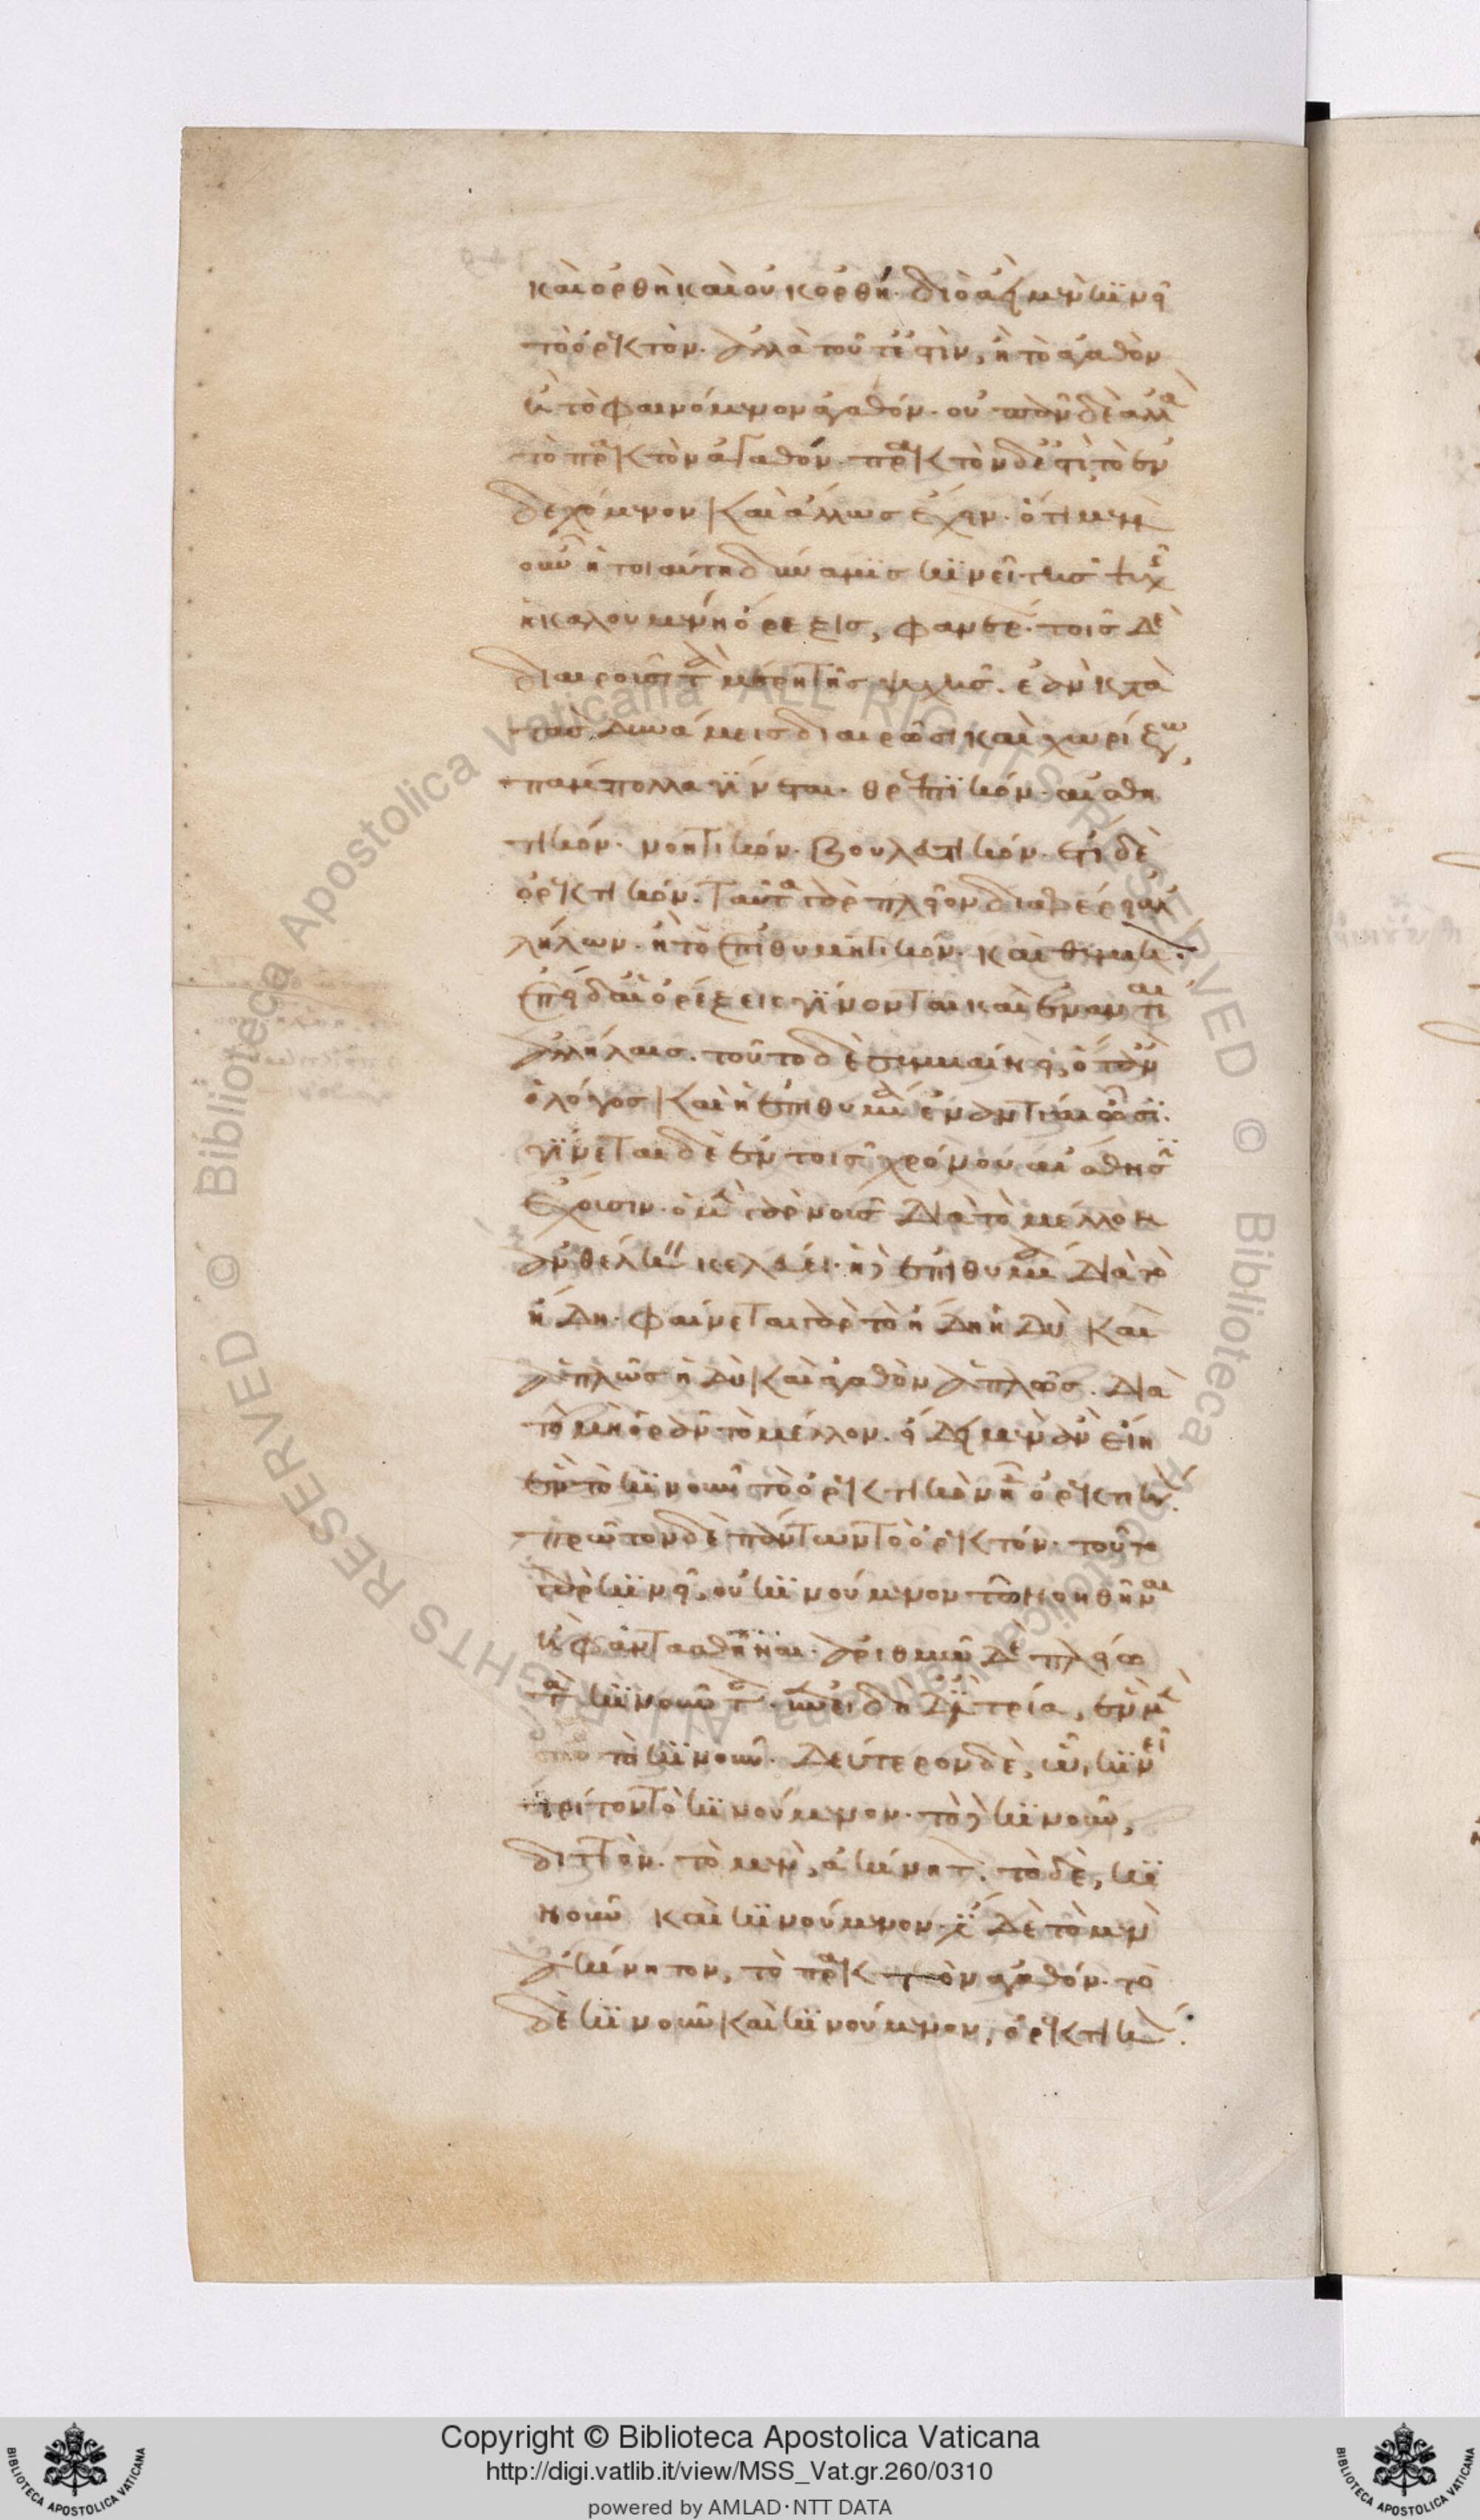 καὶ ὀρθὴ καὶ οὐκ ὀρθή· διὸ ἀεὶ μὲν κινεῖ
τὸ ὀρεκτόν· ἀλλὰ τοῦτ' ἐστὶν, ἢ τὸ ἀγαθὸν
ἢ τὸ φαινόμενον ἀγαθόν· οὐ πᾶν δὲ ἀλλὰ
τὸ πρακτὸν ἀγαθόν· πρακτὸν δέ ἐστι, τὸ ἐν
δεχόμενον καὶ ἄλλως ἔχειν· ὅτι μὲν
οὖν ἡ τοιαύτη δύναμις κινεῖ τῆς ψυχῆς
ἡ καλουμένη ὄρεξις, φανερόν· τοῖς δὲ
διαιροῦσι τὰ μέρη τῆς ψυχῆς· ἐὰν κατὰ
τὰς δυνάμεις διαιρῶσι καὶ χωρίζωσι,
πάμπολλα γίνεται· θρεπτικόν· αἰσθη
τικόν· νοητικόν· βουλευτικόν· ἔτι δὲ
ὀρεκτικόν· ταῦτα γὰρ πλεῖον διαφέρει ἀλ
λήλων· ἢ τὸ ἐπιθυμητικὸν· καὶ θυμικόν·
ἐπεὶ δ' αἱ ὀρέξεις γίνονται καὶ ἐναντίαι
ἀλλήλαις· τοῦτο δὲ συμβαίνει, ὅταν
ὁ λόγος καὶ ἡ ἐπιθυμία ἐναντίαι ὦσι·
γίνεται δὲ ἐν τοῖς χρόνου αἴσθησιν
ἔχουσιν· ὁ μὲν γὰρ νοῦς διὰ τὸ μέλλον
ἀνθέλκειν κελεύει· ἡ δὲ ἐπιθυμία διὰ τὸ
ἤδη· φαίνεται γὰρ τὸ ἤδη ἡδὺ καὶ
ἁπλῶς ἡδὺ καὶ ἀγαθὸν ἁπλῶς· διὰ
τὸ μὴ ὁρᾶν τὸ μέλλον· εἴδει μὲν ἂν εἴη
ἓν τὸ κινοῦν τὸ ὀρεκτικὸν ᾗ ὀρεκτικόν·
πρῶτον δὲ πάντων τὸ ὀρεκτόν· τοῦτο
γὰρ κινεῖ, οὐ κινούμενον τῷ νοηθῆναι
ἢ φαντασθῆναι· ἀριθμῷ δὲ πλείω
τὰ κινοῦντα· ἐπειδὴ δ' ἐστὶ τρία, ἓν μὲν
τὸ κινοῦν· δεύτερον δὲ, ᾧ κινεῖ
τρίτον τὸ κινούμενον· τὸ δὲ κινοῦν,
διττόν· τὸ μὲν, ἀκίνητον· τὸ δὲ, κι
νοῦν καὶ κινούμενον· ἔστι δὲ τὸ μὲν
ἀκίνητον, τὸ πρακτὸν ἀγαθόν· τὸ
δὲ κινοῦν καὶ κινούμενον, ὀρεκτικόν·
Copyright © Biblioteca Apostolica Vaticana
http://digi.vatlib.it/view/MSS_Vat.gr.260/0310
powered by AMLAD·NTT DATA